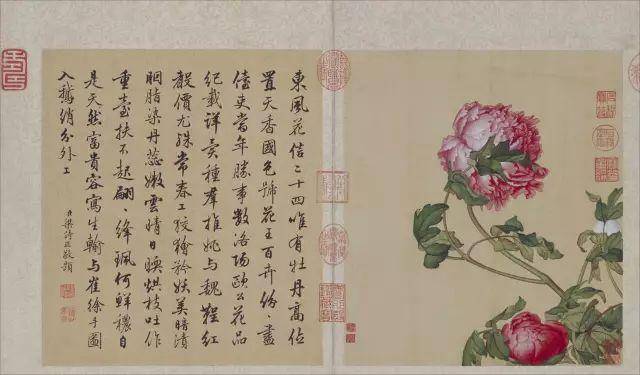 東風花信二十四唯有牡丹高位
置天香國色號花王百卉紛〻盡
儓吏當年勝事數洛場歐公花品
紀載詳種羣推姚與魏鞓紅
聲價尤殊常春工狡獪矜妖美暗漬
胭脂染丹蕊嫩雲晴日暖烘枝吐作
重臺扶不起翩〻絳珮何鮮穠自
是天然富貴容寫生輸與崔徐手圖
入鵝綃分外工
臣梁詩正敬題